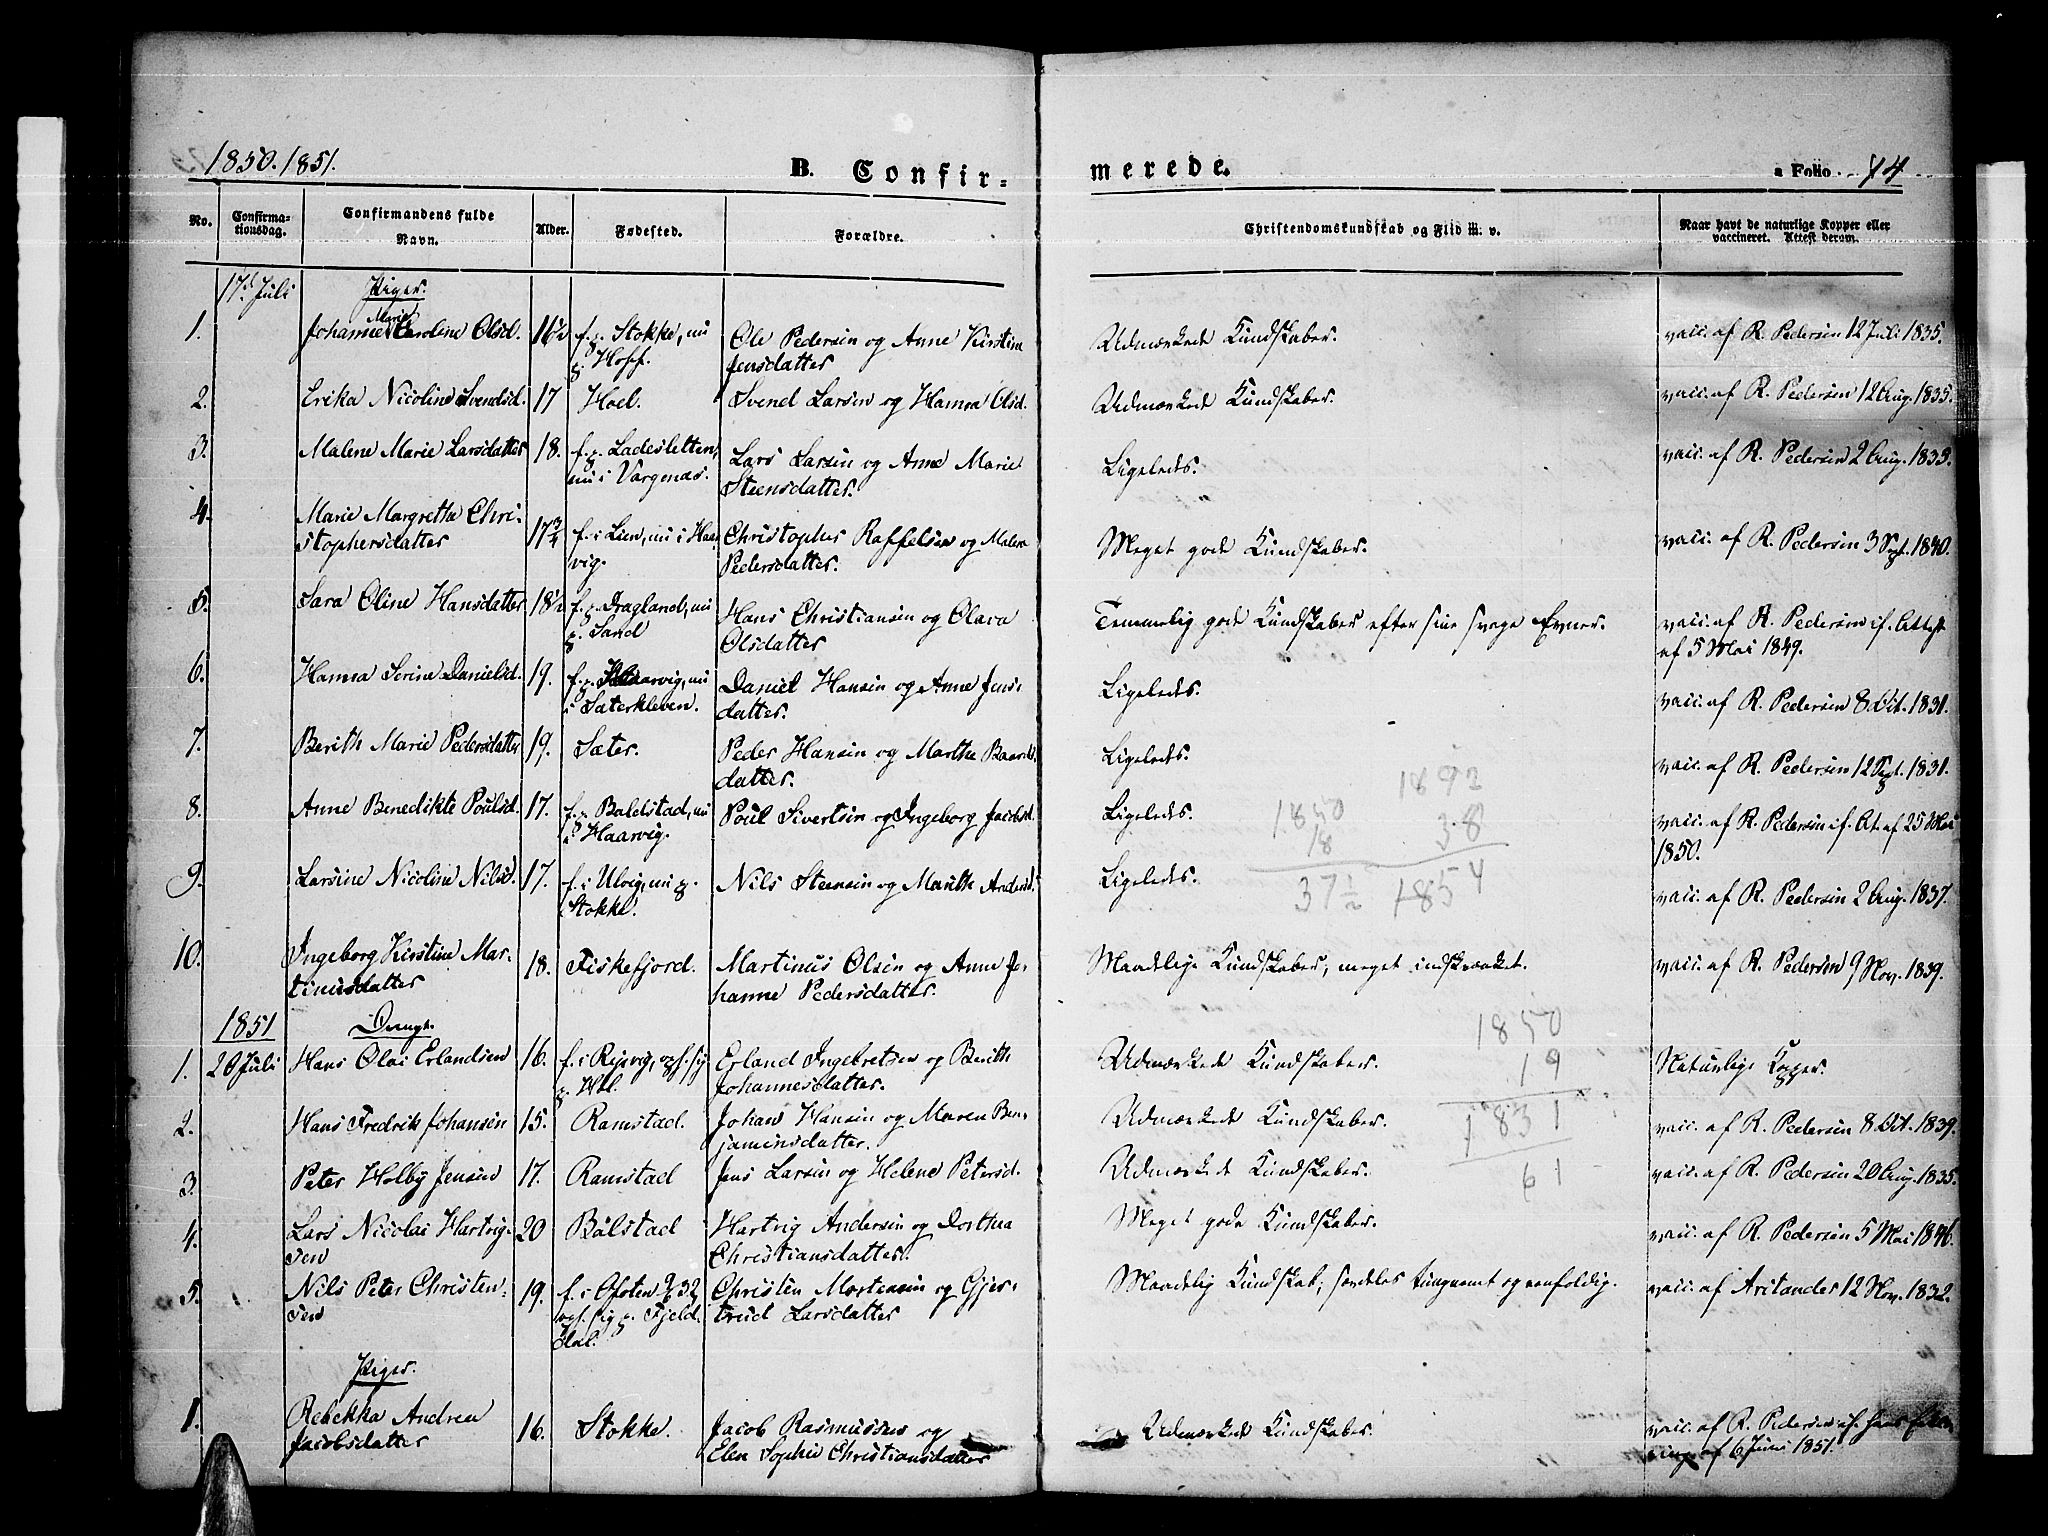 1850. 1851.
B. Confirmerede.
a Folio 14
No.
Confirma-
tionsdag.
Confirmandens fulde
Navn.
Alder.
Fødested.
Forældre.
Christendomskundskab og Flid m. v.
Naar havt de naturlige Kopper eller
vaccineret. Attest derom.
17d Juli
Piger.
1. Johanne Marie Caroline Olsd. 16½ f. p. Stokke, nu
p. Hoff.
Ole Pedersen og Anne Kirstine
Jensdatter
Udmærkede Kundskaber.
vacc. af R. Pedersen 12 Juli 1835.
2. Erika Nicoline Svendsd. 17 Hoel. Svend Larsen og Hanna Olsd. Udmærkede Kundskaber. vacc. af R. Pedersen 12 Aug. 1835.
3. Malene Marie Larsdatter 18. f. p. Ladesletten,
nu i Vargenæs.
Lars Larsen og Anne Marie
Steensdatter.
Ligeleds.
vacc. af R. Pedersen 2 Aug. 1833.
4. Marie Margrethe Chri-
stophersdatter
17¾ f. i Lien, nu i Haar-
vig.
Christopher Raffelsen og Malene
Pedersdatter.
Meget gode Kundskaber.
vacc. af R. Pedersen 3 Sept. 1840.
5. Sara Oline Hansdatter 18½ f. p. Dragland, nu
p. Sand
Hans Christiansen og Olava
Olsdatter
Temmelig gode Kundskaber efter sine svage Evner.
vacc. af R. Pedersen if. Attest
af 5 Mai 1849.
6. Hanna Serine Danielsd. 19. f. p. Haarvig, nu
i Sæterkleven.
Daniel Hansen og Anne Jens-
datter.
Ligeleds.
vacc. af R. Pedersen 8 Oct. 1831.
7. Berith Marie Pedersdatter 19. Sæter. Peder Hansen og Marthe Baards-
datter.
Ligeleds.
vacc. af R. Pedersen 12 Sept. 1831.
8. Anne Benedikte Poulsd. 17. f. p. Baldstad, nu
i Haarvig.
Poul Sivertsen og Ingeborg Jacobsd.
Ligeleds.
vacc. af R. Pedersen if. At. af 25 Mai
1850.
9. Larsine Nicoline Nilsd. 17. f. i Ulvig, nu p.
Stokke.
Nils Steensen og Marith Andersd.
Ligeleds.
vacc. af R. Pedersen 2 Aug. 1837.
1850
18
37½
1892
38
1854
10. Ingeborg Kirstine Mar-
tinusdatter
18. Fiskefjord. Martinus Olsen og Anne Jo-
hanne Pedersdatter.
Maadelige Kundskaber, meget indskrænket.
vacc. af R. Pedersen 9 Nov. 1839.
1851
Drenge.
1. 20 Juli Hans Olai Erlandsen 16. f. i Repvig, oph. sig
p. Hol.
Erland Ingebretsen og Berith
Johannesdatter.
Udmærkede Kundskaber.
Naturlige Kopper.
1850
19
1831
61
2. Hans Fredrik Johansen 15. Ramstad. Johan Hansen og Maren Ben-
jaminsdatter.
Udmærkede Kundskaber.
vacc. af R. Pedersen 8 Oct. 1839.
3. Peter Holby Jensen 17. Ramstad Jens Larsen og Helene Petersd. Udmærkede Kundskaber. vacc. af R. Pedersen 20 Aug. 1835.
4. Lars Nicolai Hartvig-
sen
20 Bolstad Hartvig Andersen og Dorthea
Christiansdatter.
Meget gode Kundskaber.
vacc. af R. Pedersen 5 Mai 1846.
5. Nils Peter Christen-
sen
19. f. i Ofoten 32
oph. sig p. Fjeld.
Hol.
Christen Mortensen og Gjer-
trud Larsdatter
Maadelig Kundskab; særdeles tungnemt og eenfoldig.
vacc. af Aristander 12 Nov. 1832.
Piger.
1. Rebekka Andrea
Jacobsdatter
16. Stokke. Jacob Rasmussen og
Elen Sophie Christiansdatter
Udmærkede Kundskaber.
vacc. af R. Pedersen if. hans
af 6 Juni 1851.